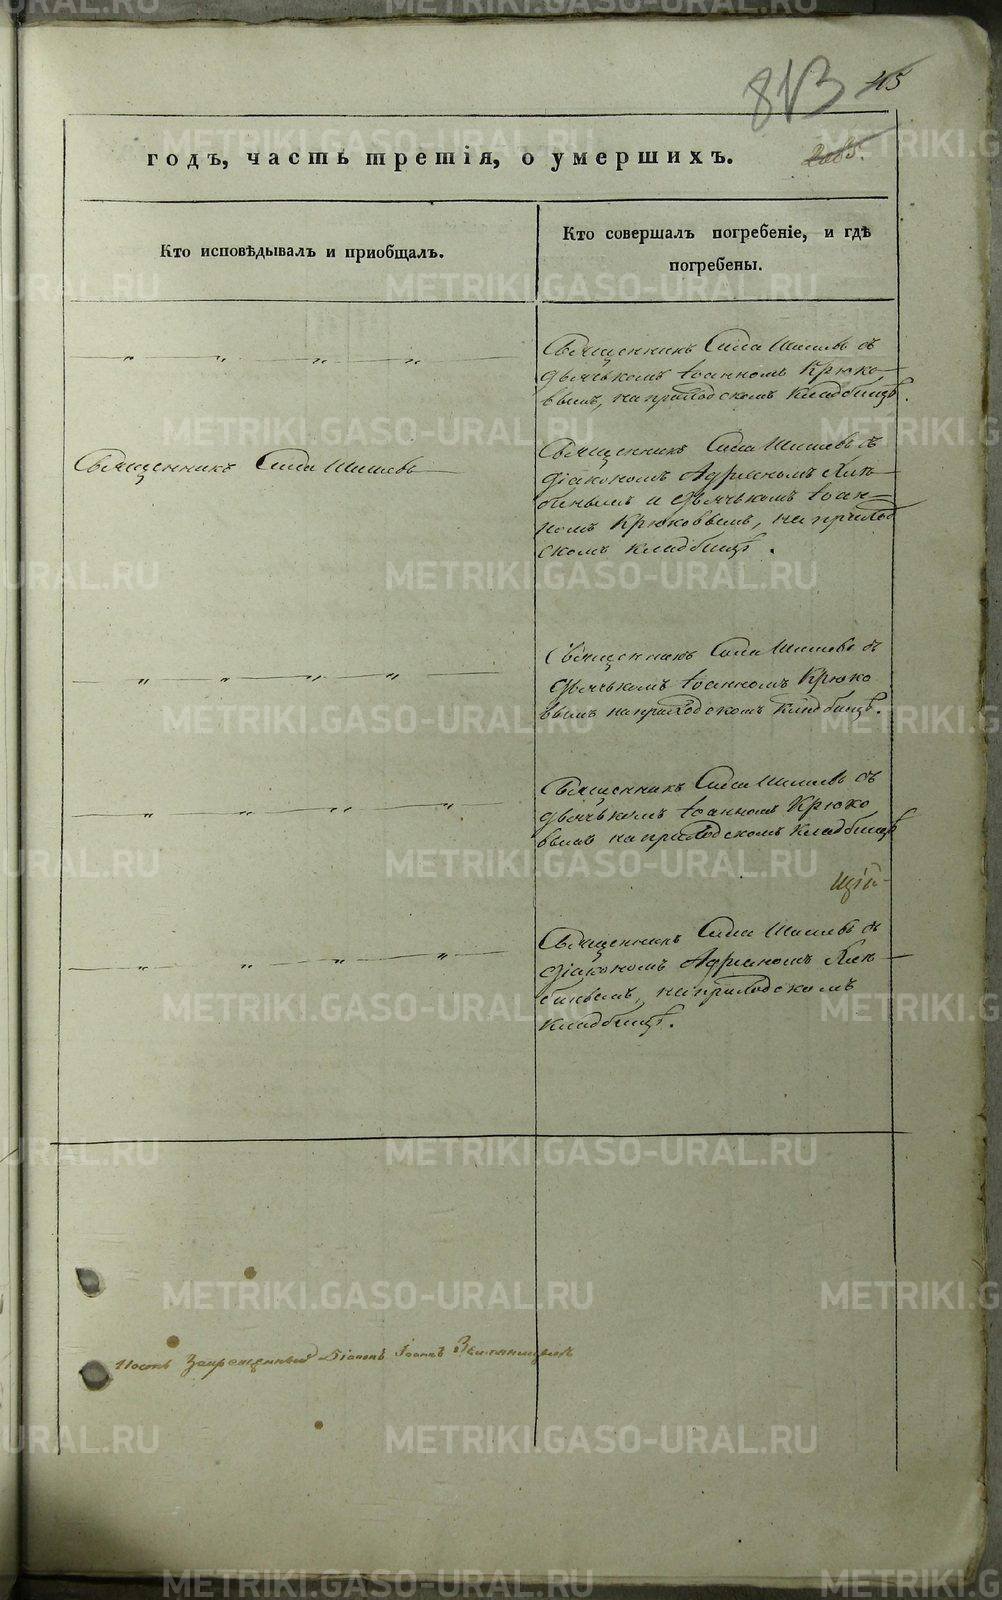 813
45
годъ, часть третія, о умершихъ.
2085.
Кто исповѣдывалъ и пріобщалъ.
Кто совершалъ погребеніе, и гдѣ
погребены.
Священникъ Сила Шишевъ съ
дьячькомъ Іоанномъ Крюко
вымъ, на приходскомъ кладбищѣ.
Священникъ Сила Шишевъ
Священникъ Сила Шишевъ съ
діакономъ Адріаномъ
и дьячькомъ Іоан=
номъ Крюковвымъ, на приход
скомъ кладбищѣ.
Священникъ Сила Шишевъ съ
дьячькомъ Іоанномъ Крюко
вымъ на приходскомъ кладбищѣ.
Священникъ Сила Шишевъ съ
дьячькомъ Іоанномъ Крюко
вымъ на приходскомъ кладбищѣ
щій
Священникъ Сила Шишевъ съ
діакономъ Адріаномъ
на приходскомъ
кладбищѣ.
Запрещенный Діаконъ Іоаннъ
METRIKI.GASO-URAL.RU